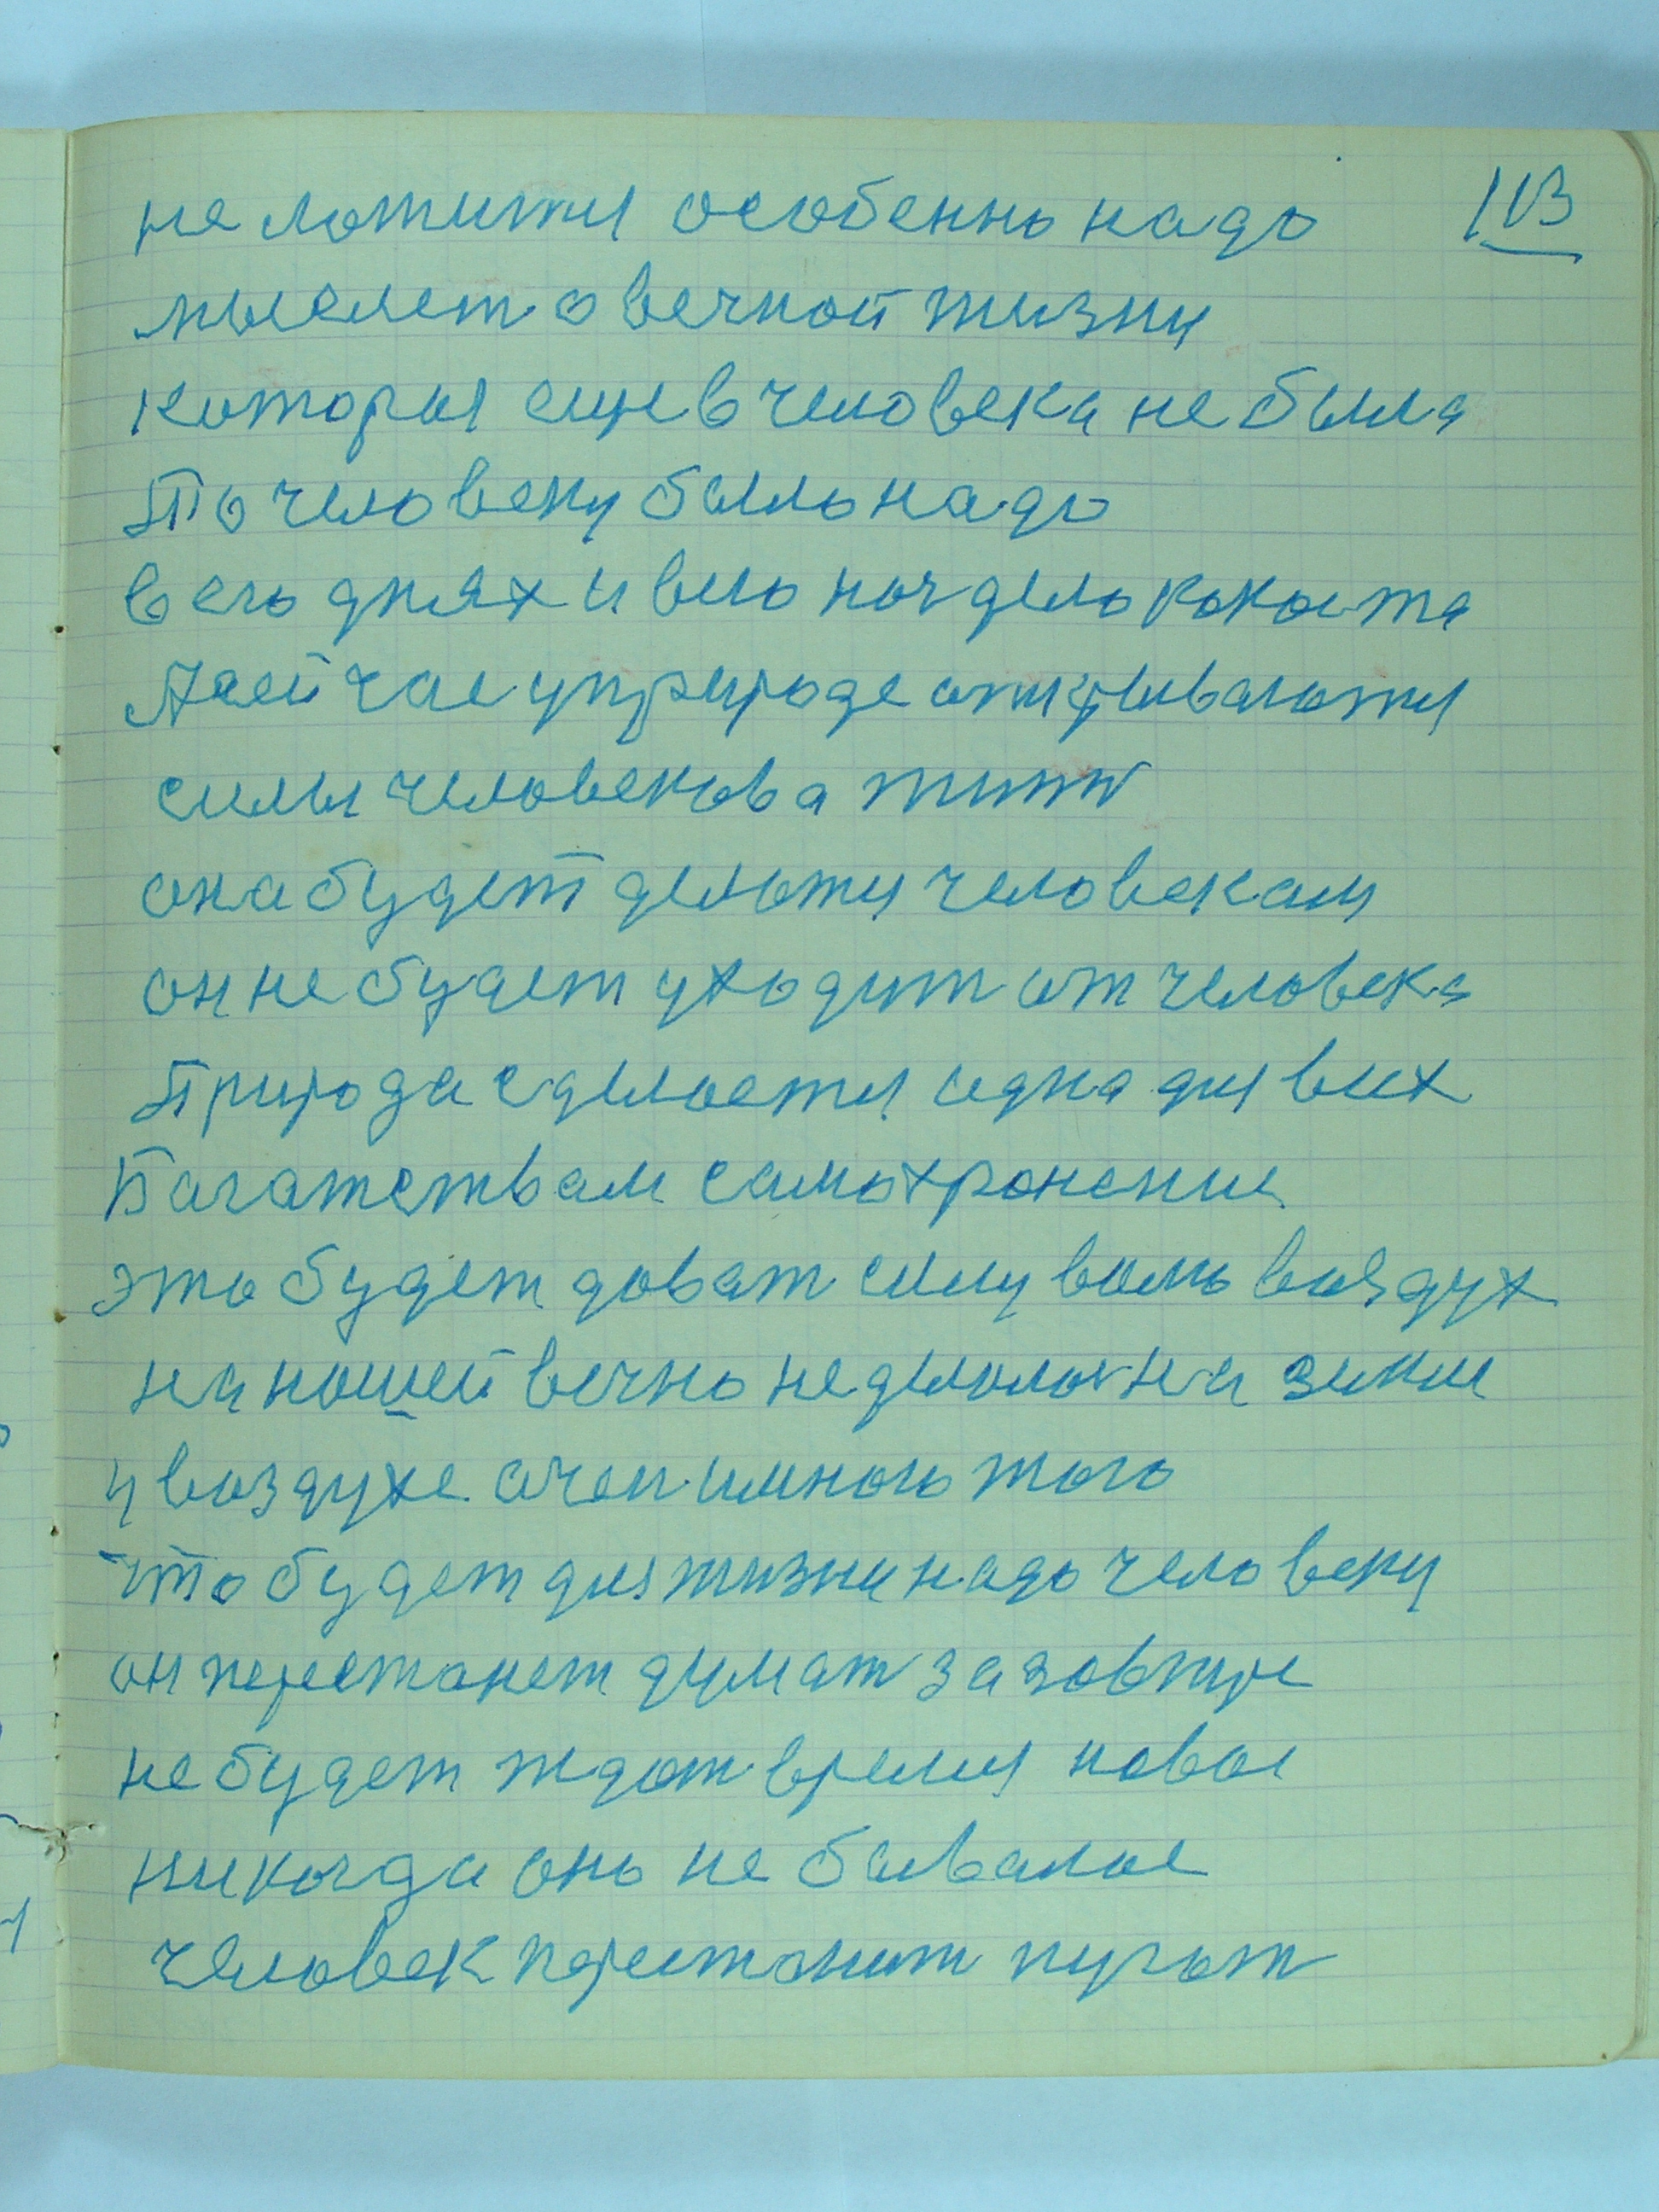 не ложится особенно надо
113
мыслет о вечной жизни
которая еще в человека не была
То человеку было надо
в его днях и в его ноч дело какоета
А сейчас у природе открываются
силы человекова жит
она будет делатся человекам
он не будет уходит от человека
Природа сделается одна для всех
Багатствам самохронение
это будет доват силу волю воздух
на нашей вечно неделимой зимли
у воздухе очен много того
что будет для жизни надо человеку
он перестанет думат за завтре
не будет ждат время новое
никогда оно не бывалое
человек перестанит пугат